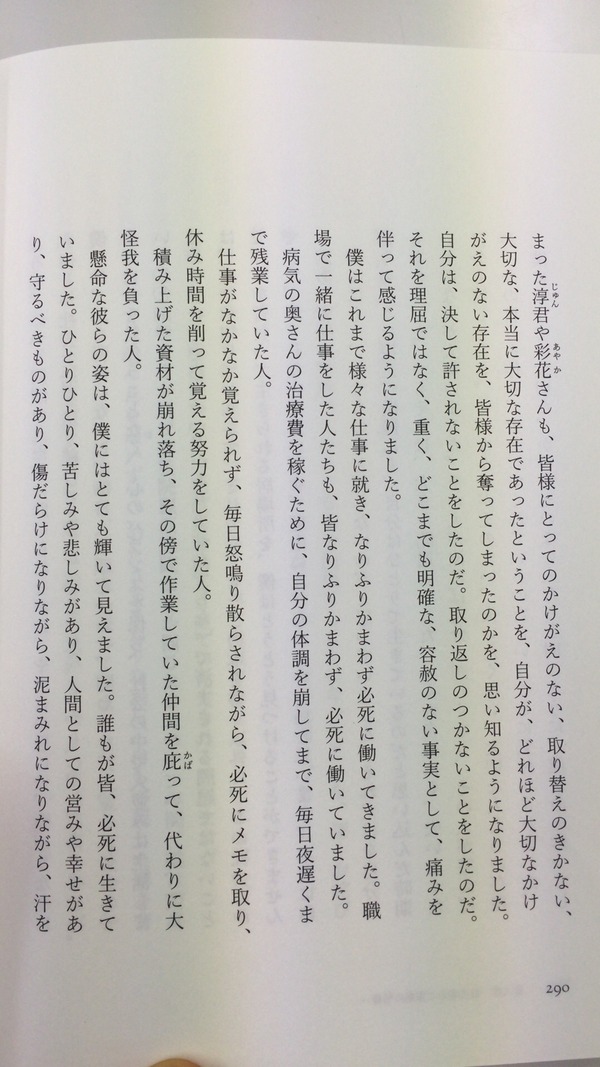 まった淳君や彩花さんも、皆様にとってのかけがえのない、取り替えのきかない、
大切な、本当に大切な存在であったということを、自分が、どれほど大切なかけ
がえのない存在を、皆様から奪ってしまったのかを、思い知るようになりました。
自分は、決して許されないことをしたのだ。取り返しのつかないことをしたのだ。
それを理屈ではなく、重く、どこまでも明確な、容赦のない事実として、痛みを
伴って感じるようになりました。
僕はこれまで様々な仕事に就き、なりふりかまわず必死に働いてきました。職
場で一緒に仕事をした人たちも、皆なりふりかまわず、必死に働いていました。
病気の奥さんの治療費を稼ぐために、自分の体調を崩してまで、毎日夜遅くま
で残業していた人。
仕事がなかなか覚えられず、毎日怒鳴り散らされながら、必死にメモを取り、
休み時間を削って覚える努力をしていた人。
積み上げた資材が崩れ落ち、その傍で作業していた仲間を庇って、代わりに大
怪我を負った人。
懸命な彼らの姿は、僕にはとても輝いて見えました。誰もが皆、必死に生きて
いました。ひとりひとり、苦しみや悲しみがあり、人間としての営みや幸せがあ
り、守るべきものがあり、傷だらけになりながら、泥まみれになりながら、汗を
290